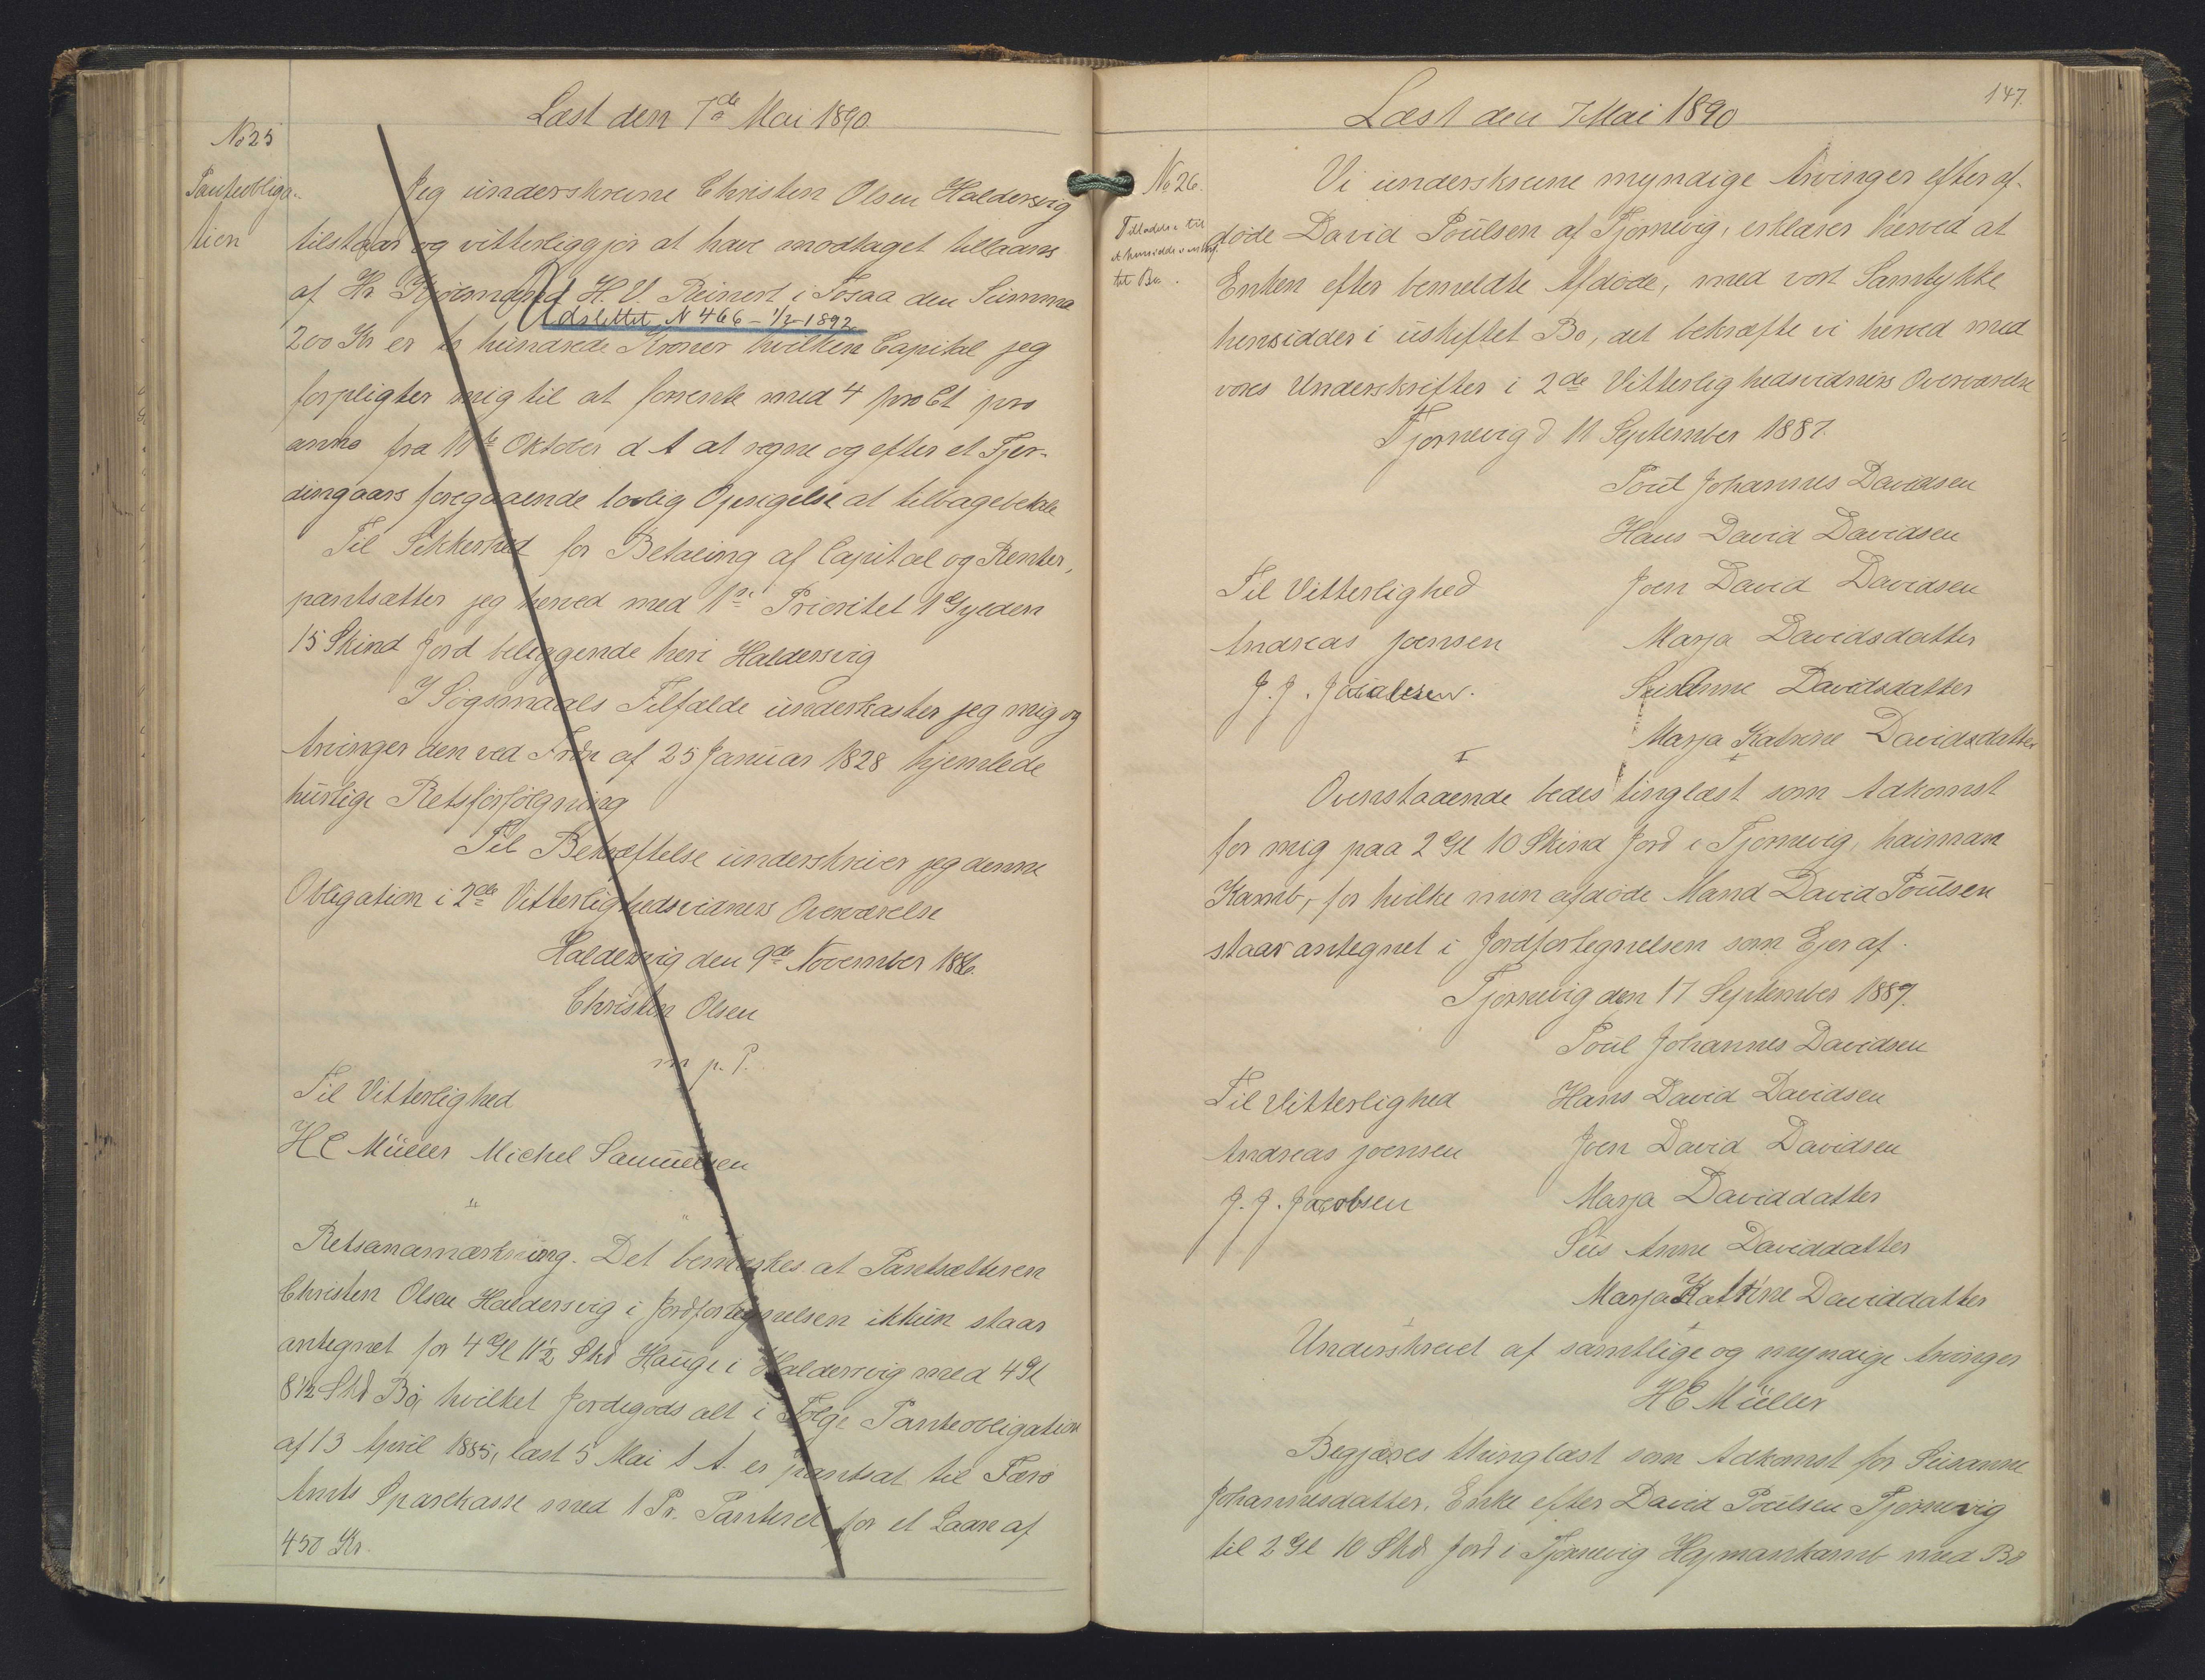 Læst den 7de Mai 1890
No 25
Panteobliga-
tion
Jeg underskrevne Christen Olsen Haldersvig
tilstaar og vitterliggjør at have modtaget tillaans
af Hr Kjøbmand H. V. Reinert i Fosaa den Summa
Udslettet N 466 - 1/2 - 1892
200 Kr er to hundrede Kroner hvilken Capital jeg
forpligter mig til at forrente med 4 pro Ct pro
anno fra 11te Oktober d A at regne og efter et Fjer-
dingaars foregaaende lovlig Opsigelse at tilbagebetale
Til Sikkerhed for Betaling af Capital og Renter,
pantsætter jeg herved med 1ste Prioritet 1 Gylden
15 Skind Jord beliggende heri Haldersvig
I Søgsmaals Tilfælde underkaster jeg mig og
Arvinger den ved Frdn af 25 Januar 1828 hjemlede
hurtige Retsforfølgning
Til Bekræftelse underskriver jeg denne
Obligation i 2de Vitterlighedsvidners Overværelse
Haldersvig den 9de November 1886.
Christen Olsen
m p. P.
Til Vitterlighed
H C Müller Michel Samuelsen
"
Retsanmærkning. Det bemærkes at Pantsætteren
Christen Olsen Haldersvig i Jordfortegnelsen ikkun staar
antegnet for 4 Gl 11 1/2 Skd Hauge i Haldersvig med 4 Gl
8 1/2 Skd Bø, hvilket Jordegods alt i Følge Panteobligation
af 13 April 1885, læst 5 Mai s A. er pantsat til Færø
Amts Sparekasse med 1 Pr. Panteret for et Laan af
450 Kr.
147.
Læst den 7 Mai 1890
No 26.
Tilladelse til
at hensidde i uskif-
tet Bo.
Vi underskrevne myndige Arvinger efter af-
døde David Poulsen af Tjørnevig, erklærer herved at
Enken efter bemeldte Afdøde, med vort Samtykke
hensidder i uskiftet Bo, det bekræfte vi herved med
vores Underskrifter i 2de Vitterlighedsvidners Overværelse
Tjørnevig d 11 September 1887.
Poul Johannes Davidsen
Hans David Davidsen
Til Vitterlighed
Joen David Davidsen
Andreas Joensen
Marja Davidsdatter
J. J. Jacobsen.
Susanne Davidsdatter
Marja Katrine Davidsdatter
Ovenstaaende bedes tinglæst som Adkomst
for mig paa 2 Gl 10 Skind Jord i Tjørnevig, haiman
Kamb, for hvilke min afdøde Mand David Poulsen
staar antegnet i Jordfortegnelsen som Ejer af.
Tjørnevig den 17 September 1889.
Poul Johannes Davidsen
Til Vitterlighed
Hans David Davidsen
Andreas Joensen
Joen David Davidsen
J. J. Jacobsen
Marja Daviddatter
Sus Anne Daviddatter
Marja Katrine Daviddatter
Underskrevet af samtlige og myndige Arvinger
H C Müller
Begjæres thinglæst som Adkomst for Susanne
Johannesdatter, Enke efter David Poulsen Tjørnevig
til 2 Gl 10 Skd Jord i Tjørnevig Hajmankamb med Bø